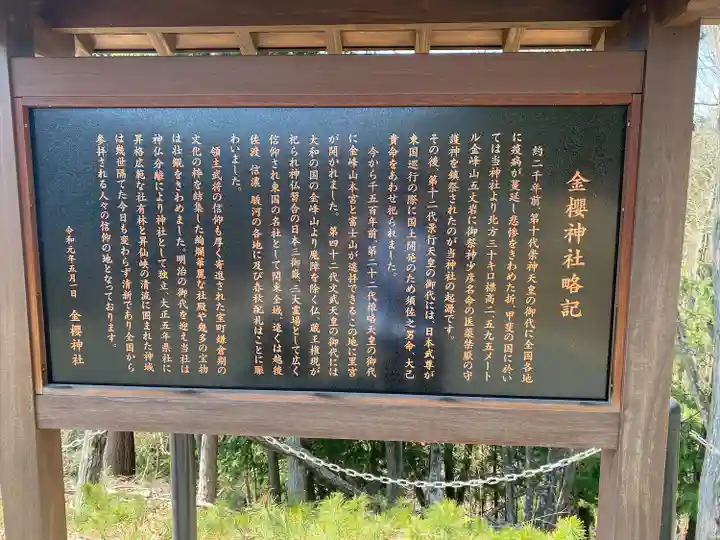 金櫻神社略記
約二千年前、第十代崇神天皇の御代に全国各地
に疫病が蔓延し悲惨をきわめた折、甲斐の国に於い
ては当神社より北方三十キロ標高二、五九五メート
ル金峰山五丈岩に御祭神少彦名命の医薬禁厭の守
護神を鎮祭されたのが当神社の起源です。
その後、第十二代景行天皇の御代には、日本武尊が
東国巡行の際に国土開発のため須佐之男命、大己
貴命をあわせ祀られました。
今から千五百年前、第二十二代雄略天皇の御代
に金峰山本宮と富士山が遥拝できるこの地に里宮
が開かれました。第四十二代文武天皇の御代には
大和の国の金峰山より魔障を除く仏、蔵王権現が
祀られ神仏習合の日本三御嶽、三大霊場として広く
信仰され東国の名社として関東全域、遠くは越後
佐渡、信濃、駿河の各地に及び春秋配札はことに賑
わいました。
領主武将の信仰も厚く寄進された室町鎌倉期の
文化の粋を結集した絢爛華麗な社殿や幾多の宝物
は壮観をきわめました。明治の御代を迎え当社は
神仏分離により神社として独立、大正五年県社に
昇格広範な社有林と昇仙峡の清流に囲まれた神域
は幾世隔てた今日も変わらず清新であり全国から
参拝される人々の信仰の地となっております。
令和元年五月一日 金櫻神社